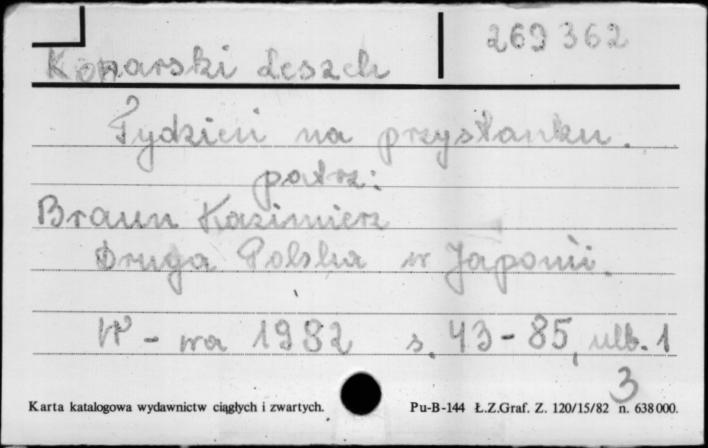 269362
Konarski Leszek
Tydzień na przystanku.
patrz:
Braun Kazimierz
Druga Polska w Japonii.
W-wa 1982 s. 43-85, nlb. 1
3
Karta katalogowa wydawnictw ciągłych i zwartych. Pu-B-144 Ł.Z.Graf. Z. 120/15/82 n. 638000.